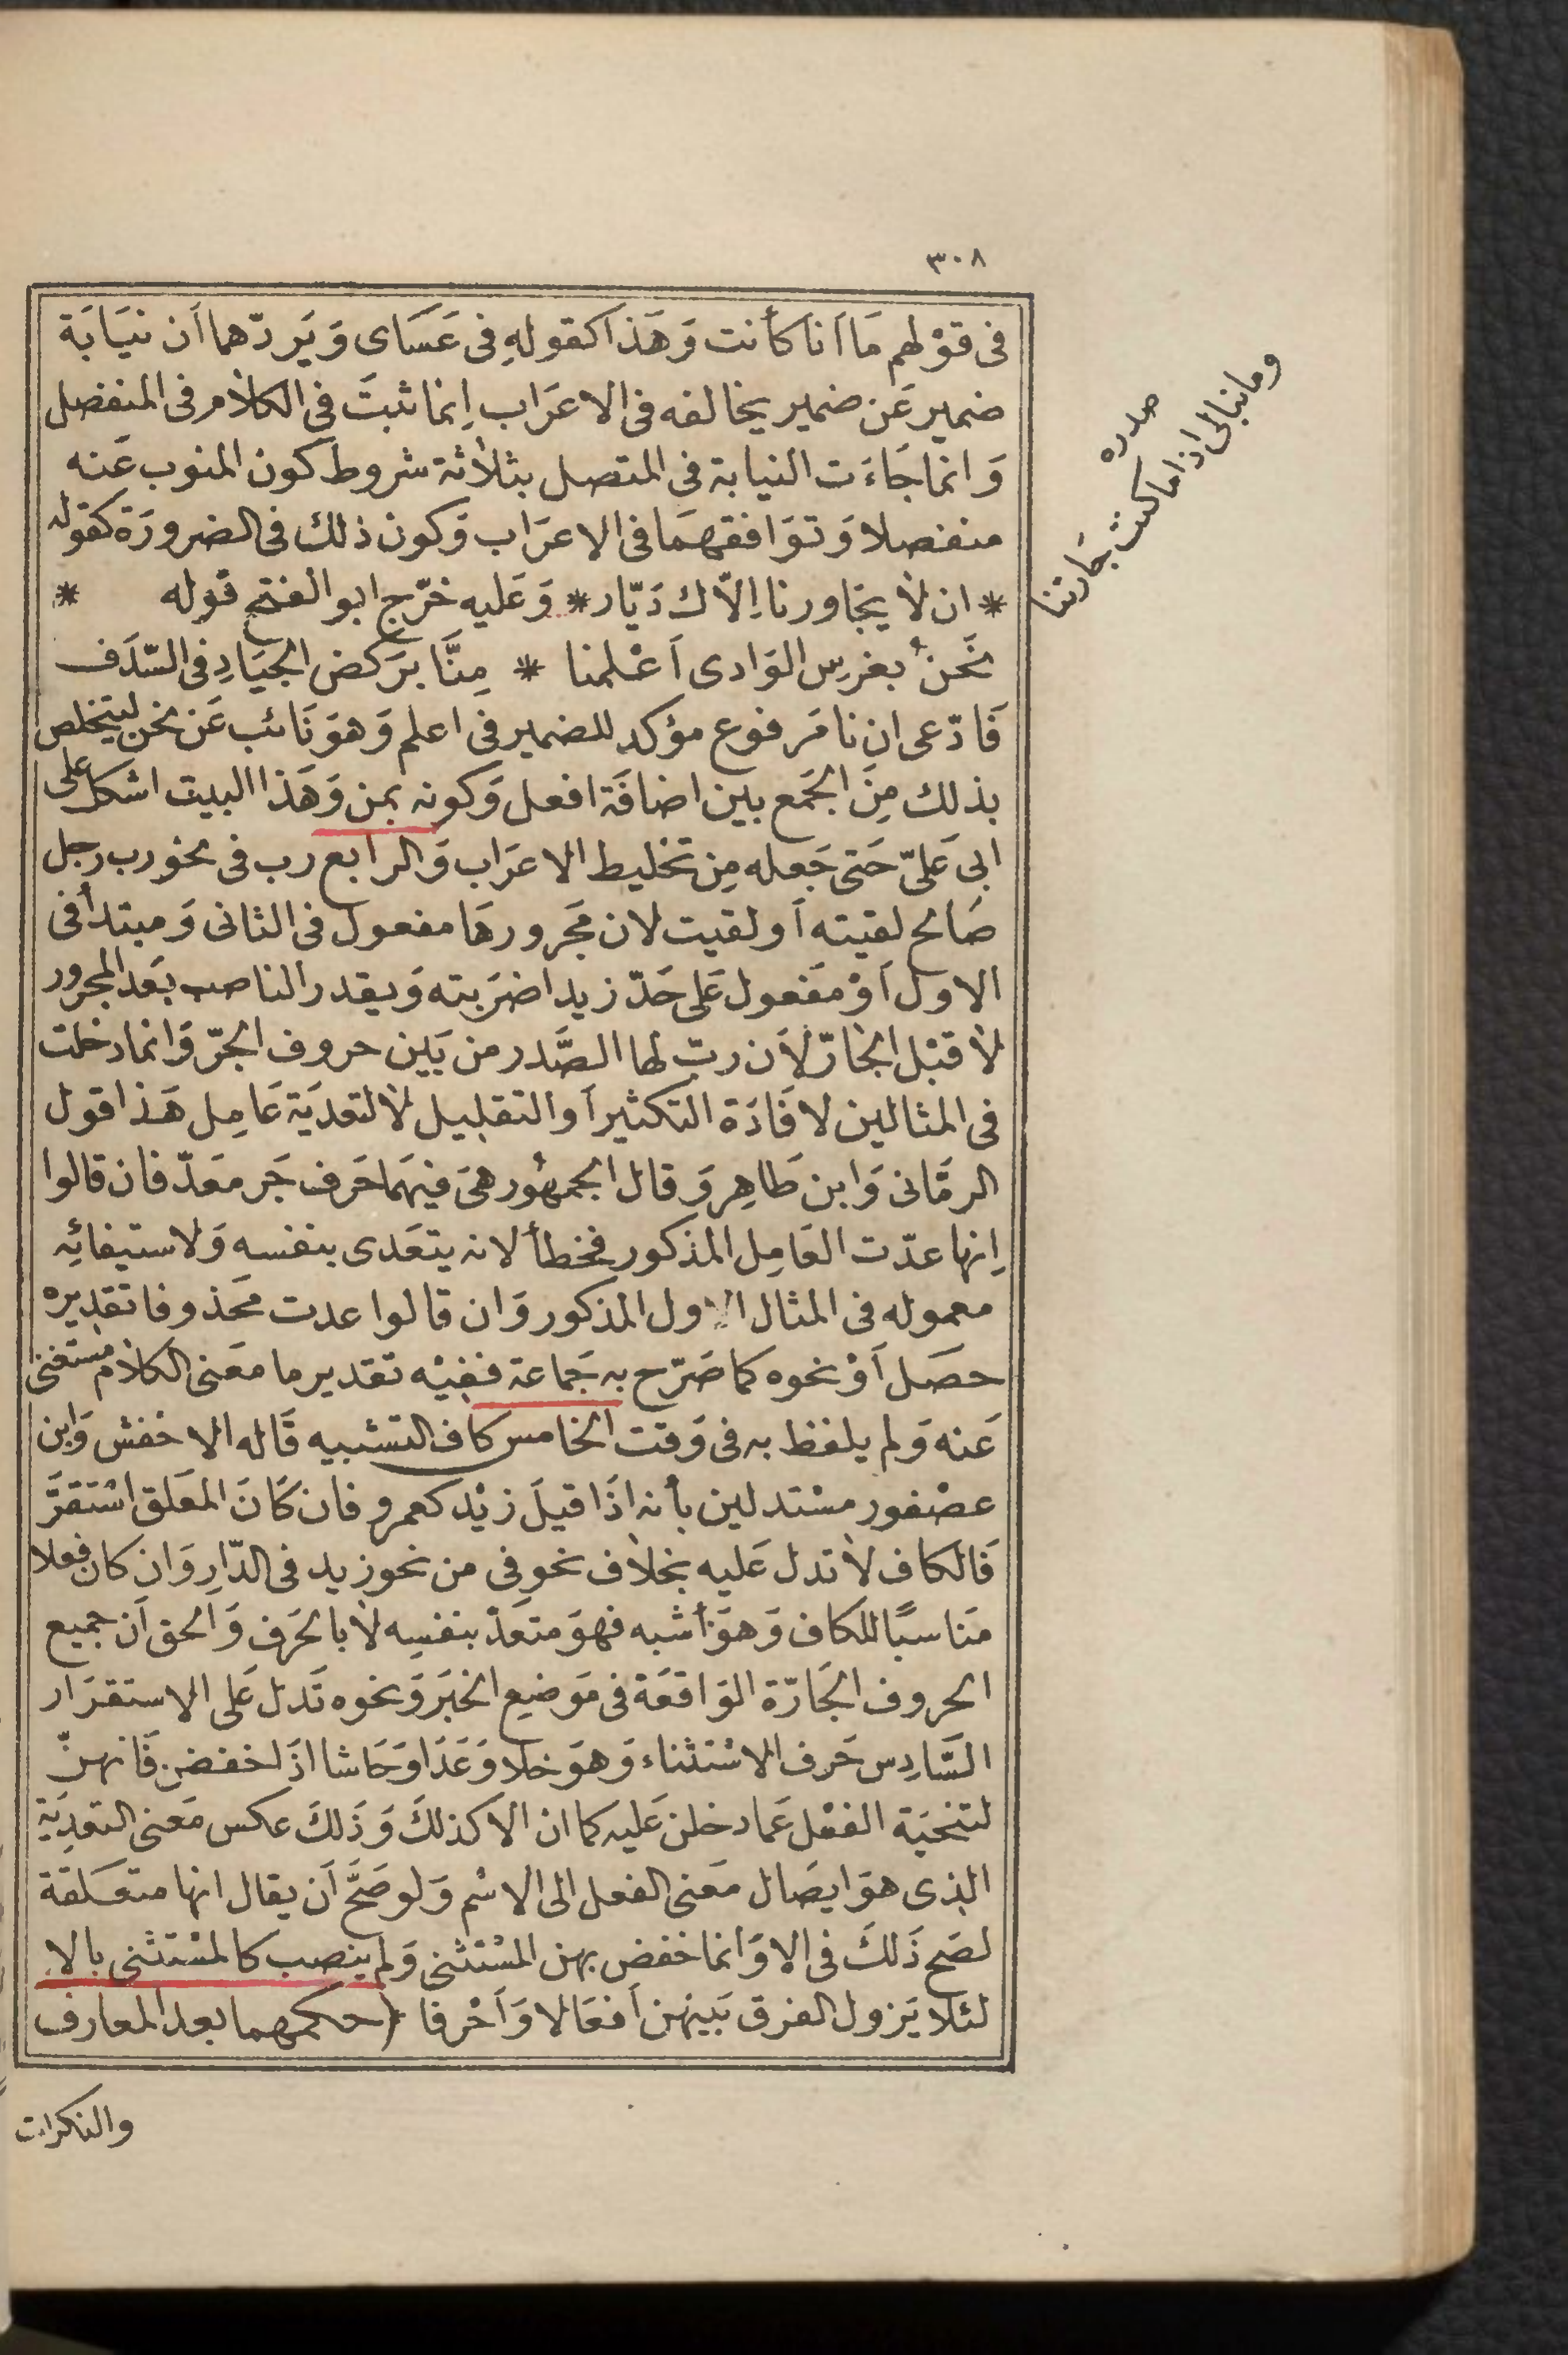 ٣٠٨
فى قوْلهم مَا اَنا كأنت وَهَذا كقولهِ فى عَسَاى وَيَردّهما اَن نيَابَة
ضمير عَن ضمير يخالفه فى الاعرَاب اِنما ثبتَ فى الكلام فى المنفصل
وَانما جَاءَت النيابة فى المتصل بثلاثة شروط كون المنوب عَنه
منفصلا وَتوَافقهمَا فى الاعرَاب وَكون ذلك فى الضرورَة كقوله
* ان لا يجَاورنا اِلاّك دَيّار * وَعَليه خرّج ابو الفتح قوله *
نحَنُ بغرسِ الوَادى اَعْلمنا * مِنَّا برَكض الجيَادِ فى السّدَف
فَادّعى ان نا مَرفوع مؤكد للضمير فى اعلم وَهوَ نَائب عَن نحن ليتخلص
بذلك مِنَ الجَمع بين اضافَة افعل وَكونه بمن وَهَذا البيت اشكل على
ابى عَلىّ حَتى جَعله مِن تخليط الاعرَاب وَالرابع رب فى نحو رب رجل
صَالح لقيته اَو لقيت لان مَجرورهَا مفعول فى الثانى وَمبتدأ فى
الاول اَوْ مفَعول عَلى حَدّ زيدا ضرَبته وَيقدر الناصب بَعد المجرور
لا قبْل الجَارّ لاَن ربّ لها الصَّدر من بَين حروف الجرّ وَانما دخلت
فى المثالين لافَادَة التكثير اَو التقليل لا لتعديَة عَامِل هَذا قول
الرمّانى وَابن طَاهِر وَقال الجمهُور هىَ فيهمَا حَرف جَر مَعدّ فان قالوا
اِنها عدّت العَامِل المذكور فخطأ لانه يتعَدى بنفسه وَلاستيفائِه
معموله فى المثال الاول المذكور وَان قالوا عدت محَذوفا تقديره
حصَل اَوْ نحوه كما صَرّح به جَماعة ففيْه تقدير ما معَنى الكلام مستغنى
عَنه وَلم يلفظ به فى وَقت الخامس كاف التشبيه قَاله الاخفش وَابن
عصْفور مسْتدلين بأنه اذَا قيلَ زيْد كعمرو فان كَانَ المعَلق اسْتقرَّ
فَالكاف لا تدل عَليه بخلاف نحو فى من نحو زيد فى الدّارِ وَان كان فعلا
مَناسبًا للكاف وَهوَ أشبه فهوَ متعَدّ بنفسِه لا بالحَرف وَالحق اَن جميع
الحروف الجَارّة الوَاقعَة فى مَوضِع الخبَر وَنحوه تَدل عَلى الاستقرَار
السَّادِس حَرف الاسْتثناء وَهوَ خلا وَعَدَا وَحَاشا اذَا خفضن فَانهنّ
لتنحيَة الفعْل عَما دخلن عَليه كما ان الا كذلكَ وَذَلكَ عكس مَعنى التعديَة
الذى هوَ ايصَال معَنى الفعل الى الاسْم وَلو صَحَّ اَن يقال انها متعَلقَة
لصَح ذَلكَ فى الا وَانما خفض بهن المسْتثنى وَلم ينصب كالمسْتثنى بالا
لئلا يَزول الفرق بَينهن اَفعَالا وَاَحْرفا (حكمهما بعد المعارف
والنكرات
صدره
وما نبالى اذا ما كنت جَارتنا